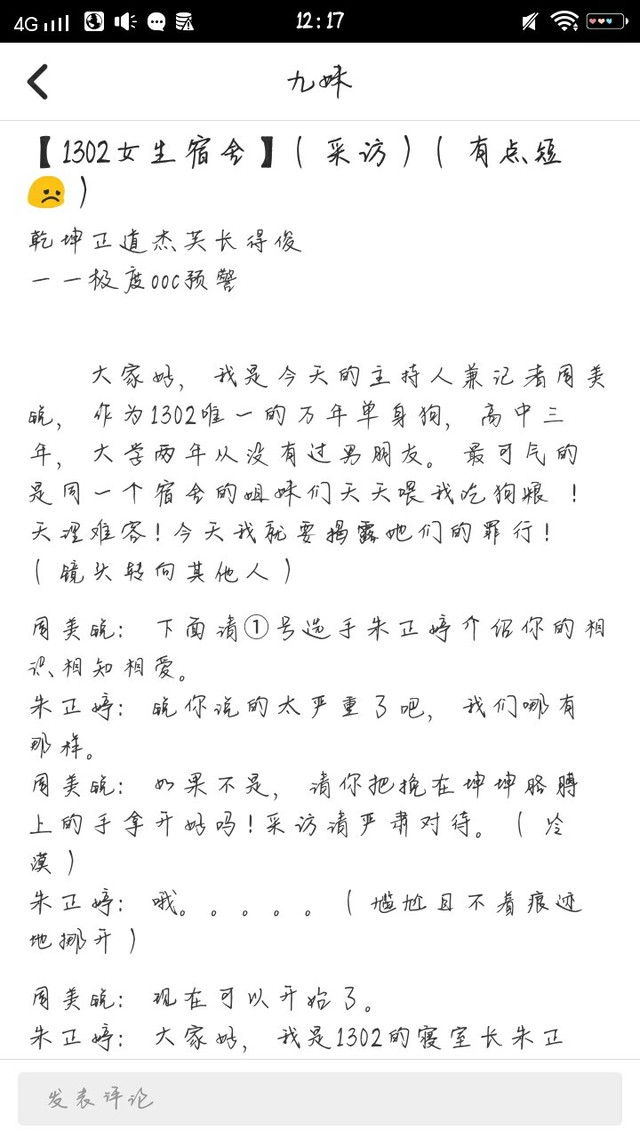 4G 12:17
九妹
【1302女生宿舍】(采访)(有点短
)
乾坤正道杰芙长得俊
一一极度ooc预警
大家好,我是今天的主持人兼记者周美
皖,作为1302唯一的万年单身狗,高中三
年,大学两年从没有过男朋友。最可气的
是同一个宿舍的姐妹们天天喂我吃狗粮!
天理难容!今天我就要揭露她们的罪行!
(镜头转向其他人)
周美皖:下面请①号选手朱正婷介绍你的相
识相知相爱。
朱正婷:皖你说的太严重了吧,我们哪有
那样。
周美皖:如果不是,请你把挽在坤坤胳膊
上的手拿开好吗!采访请严肃对待。(冷
漠)
朱正婷:哦。。。。。(尴尬且不着痕迹
地挪开)
周美皖:现在可以开始了。
朱正婷:大家好,我是1302的寝室长朱正
发表评论